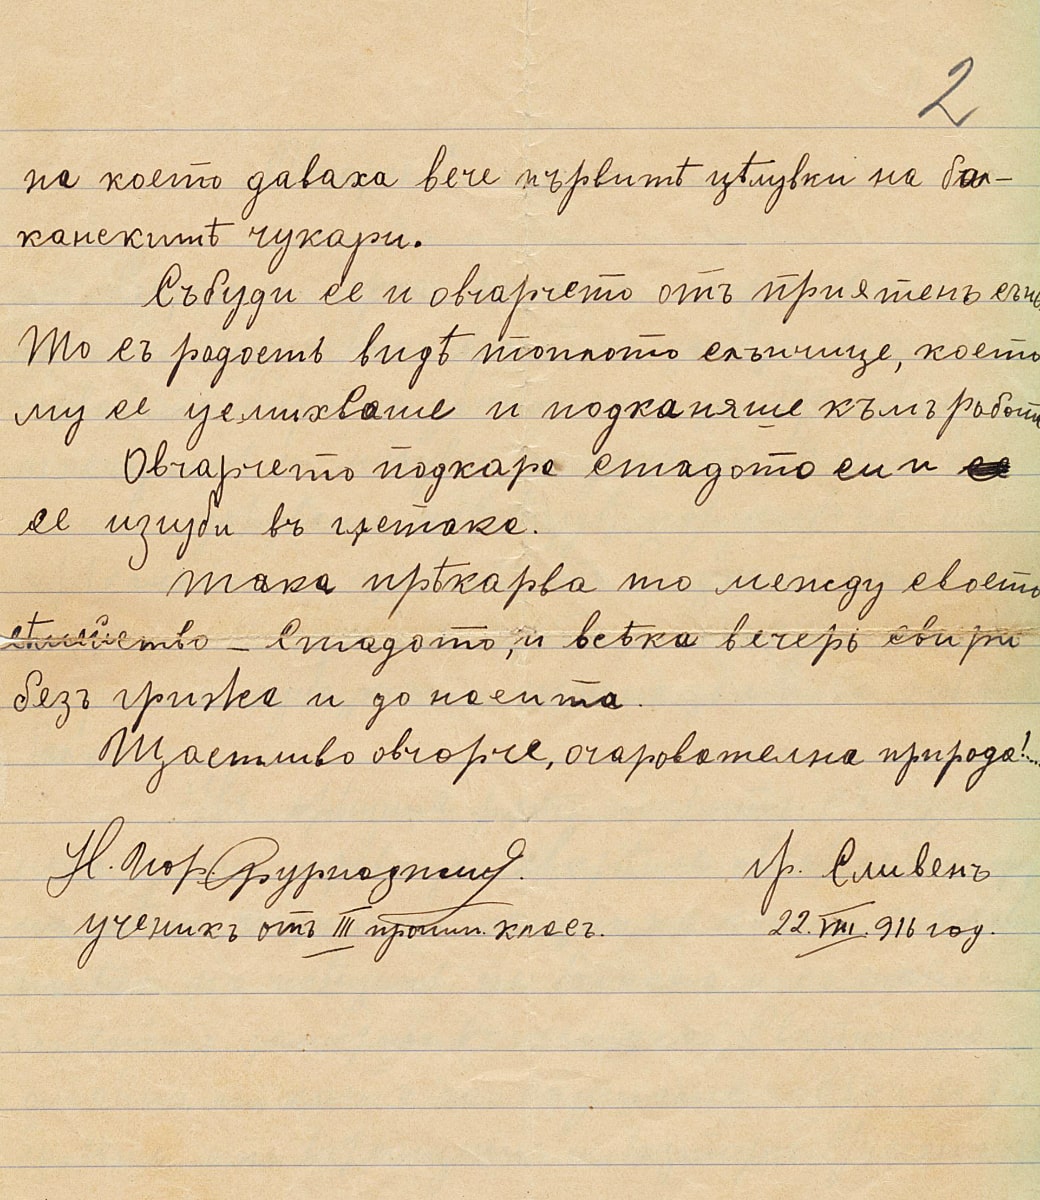 2
на което даваха вече първитѣ цѣлувки на бал-
канскитѣ чукари.
Събуди се и овчарчето отъ приятенъ сънъ
То съ радость видѣ топлото слънчице, което
му се усмихваше и подканяше къмъ работа
Овчарчето подкара стадото си и
се изгуби въ гѫстака.
Така прѣкарва то между своето
сѣмейство – стадото, и всѣка вечерь свири
безъ грижа и до насита.
Щастливо овчарче, очарователна природа!...
Н. Йор. Фурнаджиев.
гр. Сливенъ
ученикъ отъ III класъ.
22.VIII.916 год.